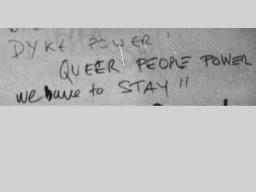 DYKE POWER!
QUEER PEOPLE POWER
we have to STAY !!